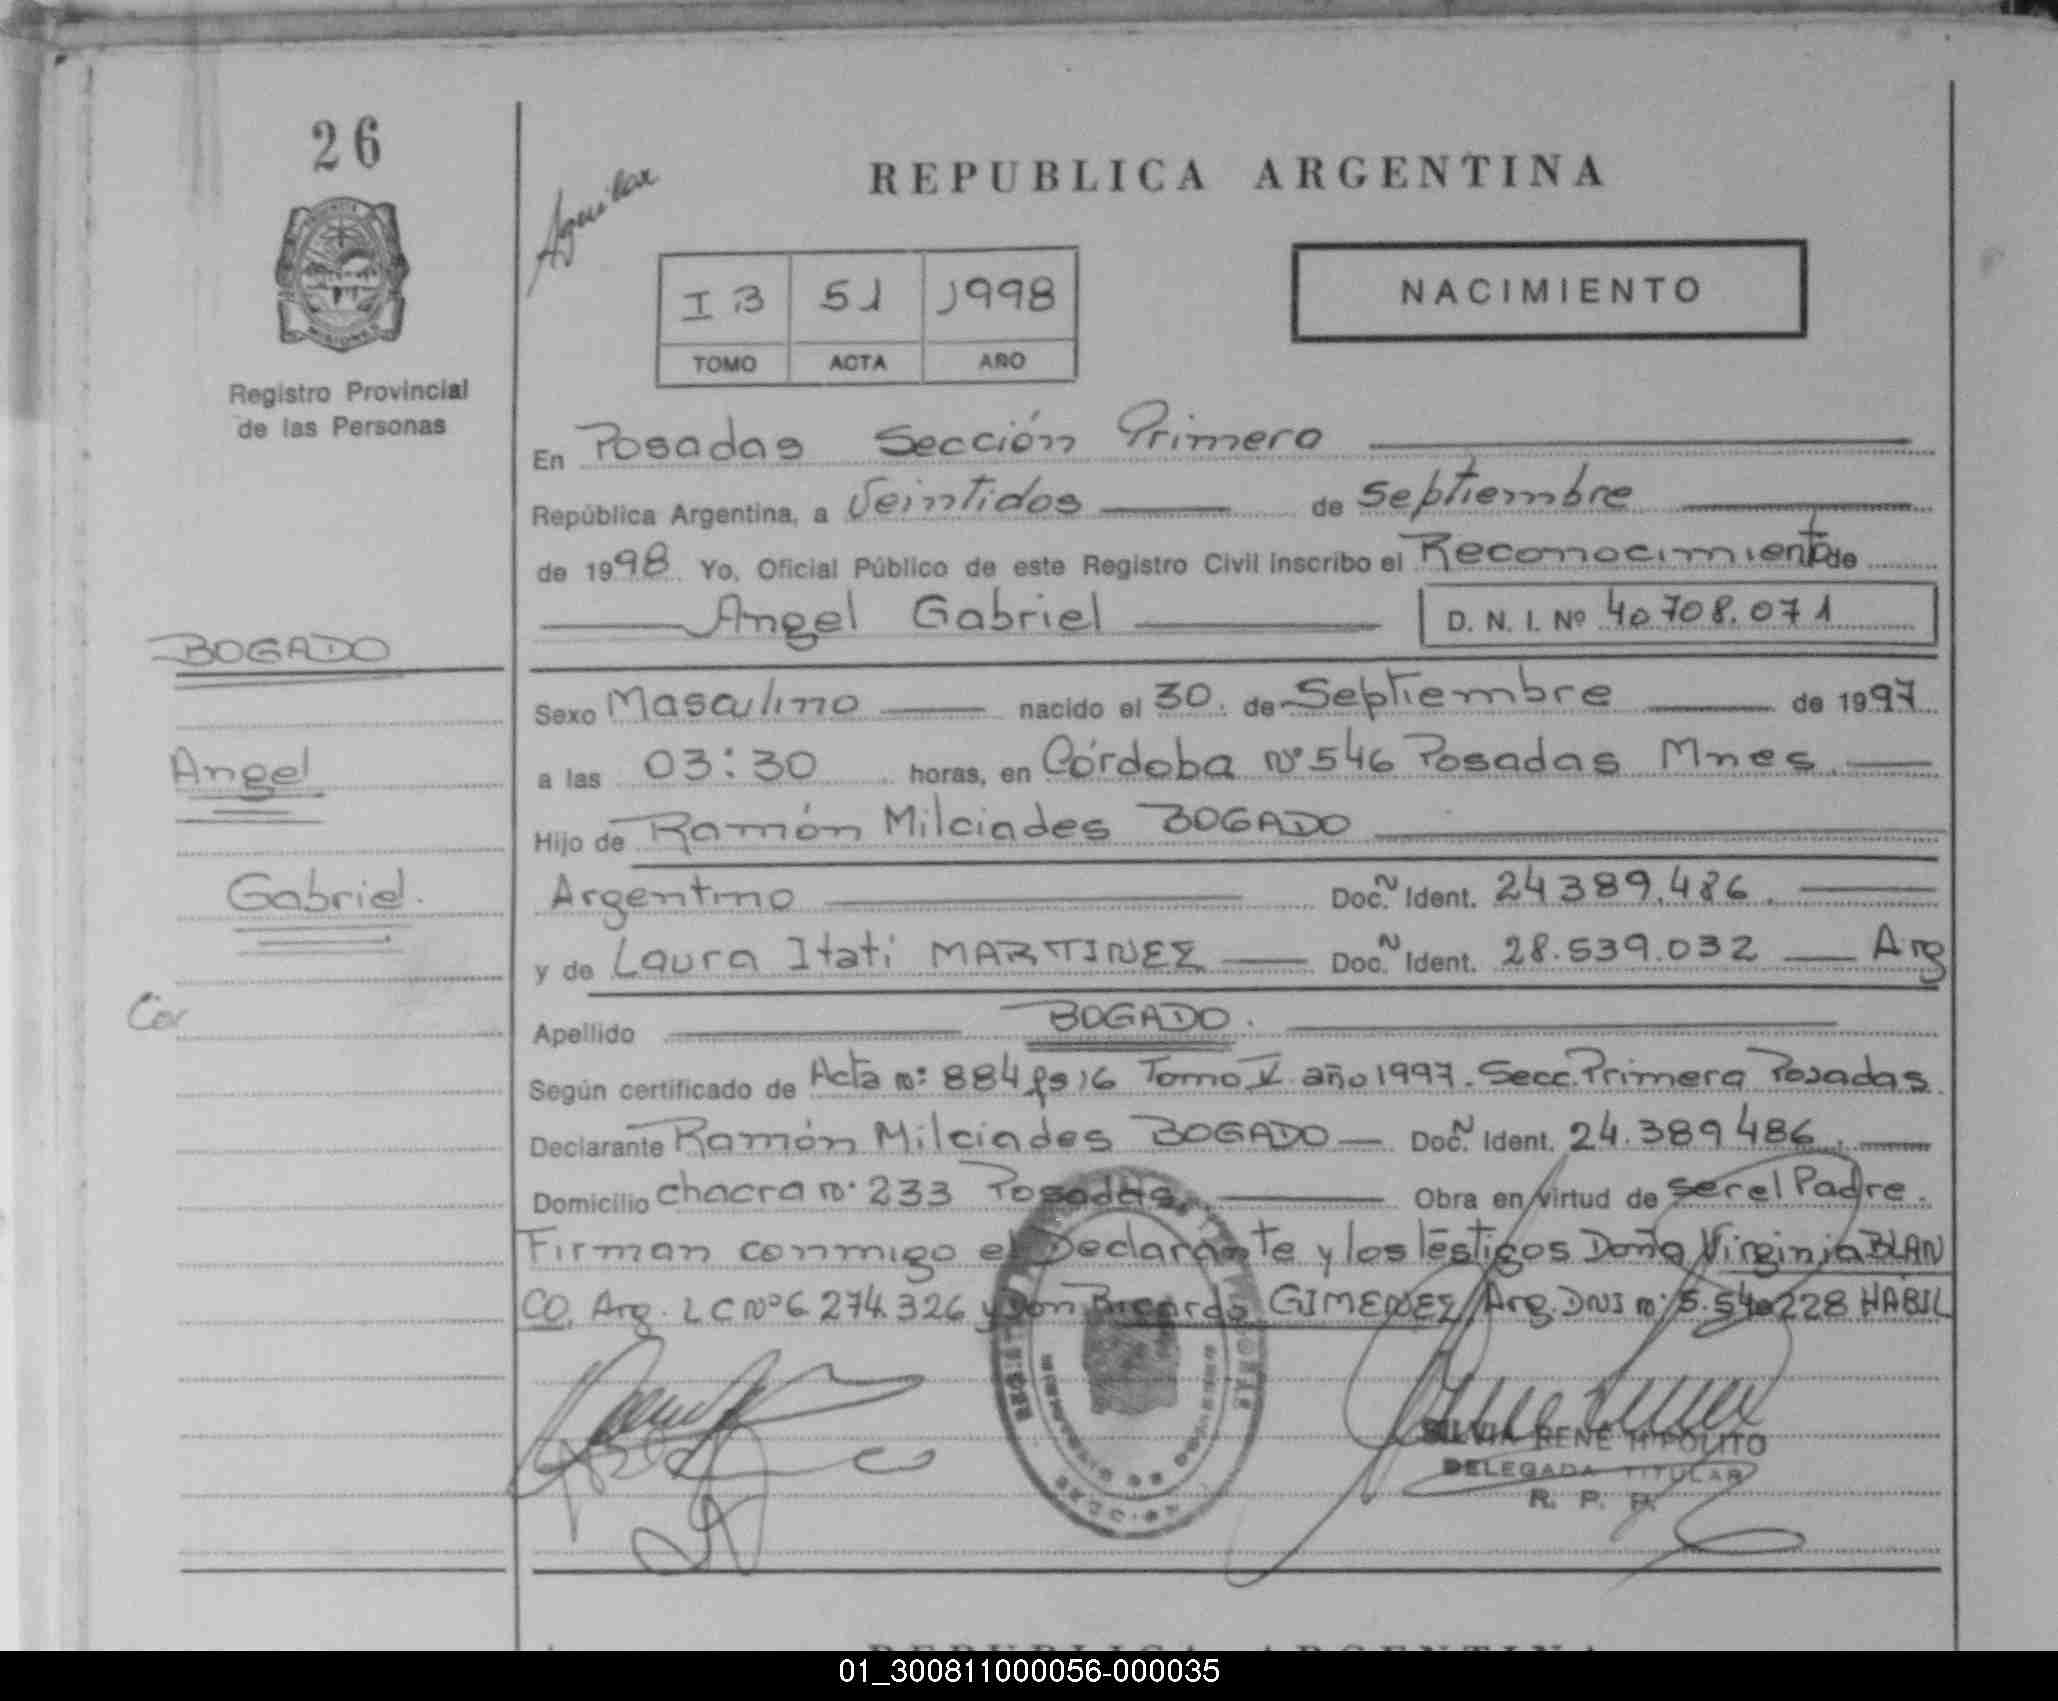 26
Registro Provincial
de las Personas
BOGADO
Angel
Gabriel.
Cor
Aguilar
REPUBLICA ARGENTINA
I B 51 1998
TOMO ACTA AÑO
NACIMIENTO
En Posadas Sección Primera
República Argentina, a Veintidos de Septiembre
de 1998 Yo, Oficial Público de este Registro Civil inscribo el Reconocimiento de
Angel Gabriel D. N. I. Nº 40.708.071
Sexo Masculino nacido el 30. de Septiembre de 1997
a las 03:30 horas, en Córdoba Nº 546 Posadas Mnes.
Hijo de Ramón Milciades BOGADO
Argentino Doc. N Ident. 24389.486.
y de Laura Itati MARTINEZ Doc. N Ident. 28.539.032 Arg
Apellido BOGADO.
Según certificado de Acta nº: 884 fs 16 Tomo V año 1997. Secc. Primera Posadas.
Declarante Ramón Milciades BOGADO Doc. N Ident. 24.389486.
Domicilio chacra nº 233 Posadas Obra en virtud de ser el Padre.
Firman conmigo el Declarante y los testigos Doña Virginia BLAN
CO, Arg. L C Nº 6.274.326 y Don Ricardo GIMENEZ Arg. DNI nº 5.540228 HABIL
SILVIA RENE HIPOLITO
DELEGADA TITULAR
R. P. P.
REPUBLICA ARGENTINA
01_300811000056-000035